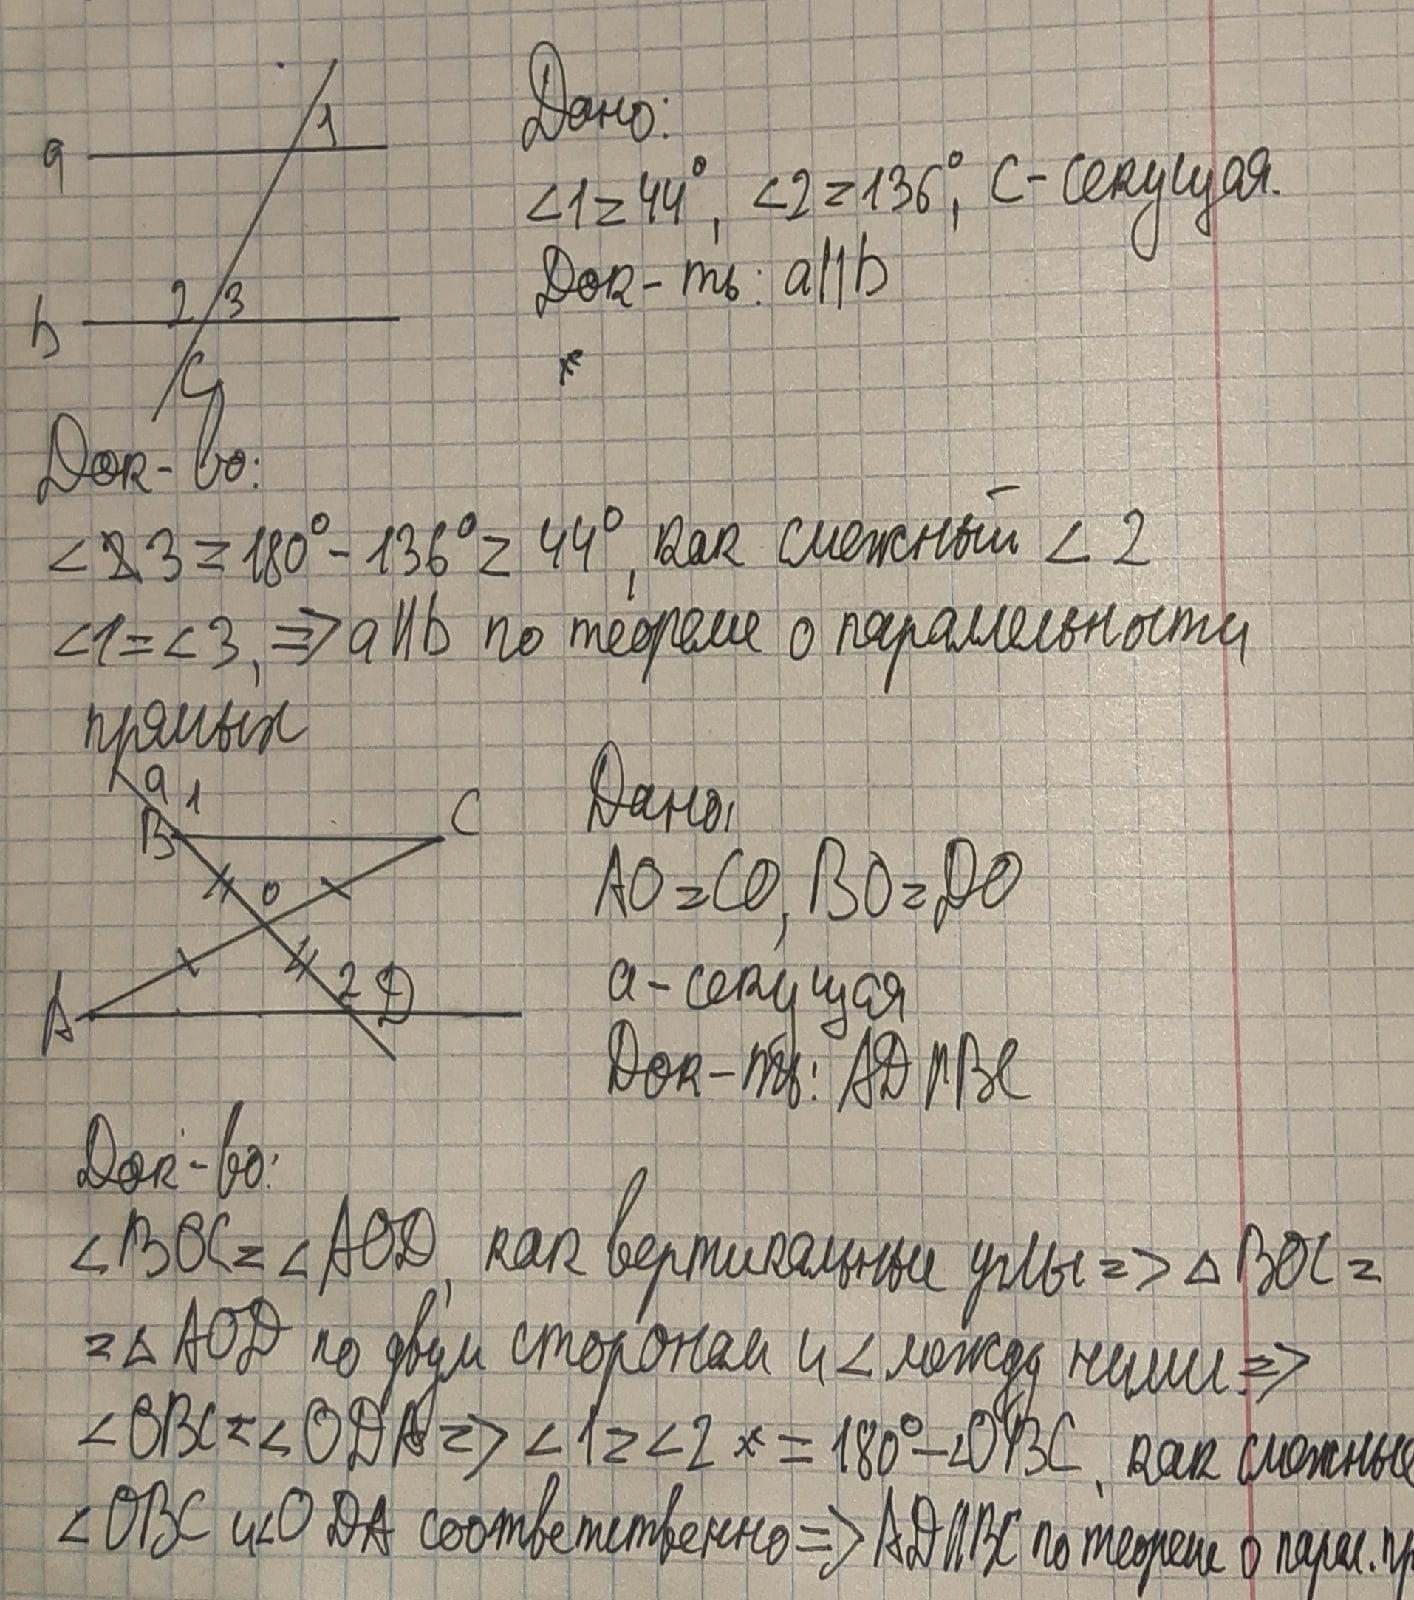 a
1
b
2 3
c
Дано:
<1=44°, <2=136°, c-секущая.
Док-ть: a||b
Док-во:
<3=180°-136°=44°, как смежный <2
<1=<3, => a||b по теореме о параллельности
прямых
a 1
B C
O
A 2 D
Дано:
AO=CO, BO=DO
a-секущая
Док-ть: AD||BC
Док-во:
<BOC=<AOD, как вертикальные углы=>△BOC=
=△AOD по двум сторонам и < между ними=>
<OBC=<ODA=> <1=<2 =180°-<OBC, как смежные
<OBC и <ODA соответственно=> AD||BC по теореме о парал. пр